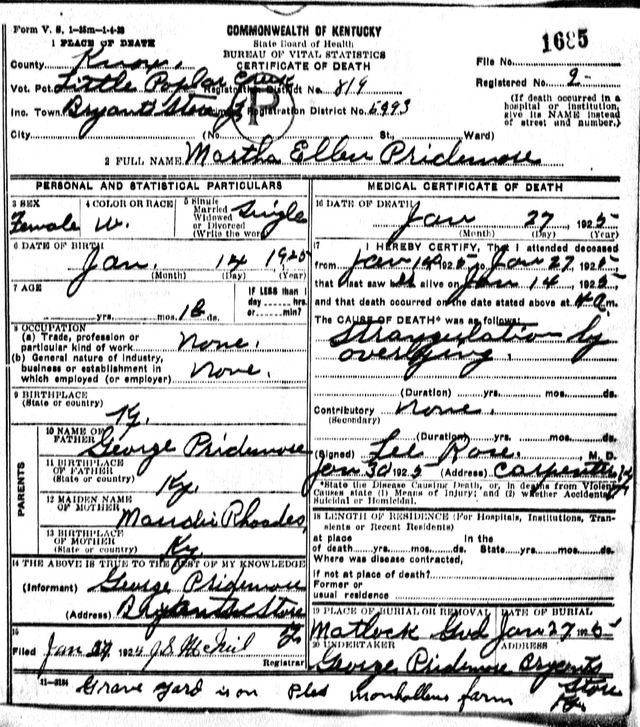 Form V. S. 1—35m—1-4-23
COMMONWEALTH OF KENTUCKY
State Board of Health
BUREAU OF VITAL STATISTICS
CERTIFICATE OF DEATH
1685
1 PLACE OF DEATH
County Knox.
File No.
Vot. Pct. Little Poplar Creek Registration District No. 819
Registered No. 2-
Inc. Town Bryant Store Ky Registration District No. 5993
P
(If death occurred in a hospital or institution, give its NAME instead of street and number.)
City (No. St., Ward)
2 FULL NAME Martha Ellen Pridemore
PERSONAL AND STATISTICAL PARTICULARS
3 SEX Female
4 COLOR OR RACE W.
5 Single Married Widowed or Divorced (Write the word) Single
6 DATE OF BIRTH
Jan. 14 1925
(Month) (Day) (Year)
7 AGE
yrs. mos. 13 ds.
IF LESS than 1 day hrs. or min.?
8 OCCUPATION
(a) Trade, profession or particular kind of work None.
(b) General nature of industry, business or establishment in which employed (or employer) None.
9 BIRTHPLACE
(State or country)
Ky.
PARENTS
10 NAME OF FATHER George Pridemore
11 BIRTHPLACE OF FATHER (State or country) Ky.
12 MAIDEN NAME OF MOTHER Rhoades
13 BIRTHPLACE OF MOTHER (State or country) Ky
14 THE ABOVE IS TRUE TO THE BEST OF MY KNOWLEDGE
(Informant) George Pridemore
(Address) Bryants Store Ky
15
Filed Jan 27 1924 J S McNeil
Registrar
11—3184
MEDICAL CERTIFICATE OF DEATH
16 DATE OF DEATH
Jan 27, 1925
(Month) (Day) (Year)
17 I HEREBY CERTIFY, That I attended deceased
from Jan 14 1925 to Jan 27 1925
that I last saw h alive on Jan 14, 1925,
and that death occurred on the date stated above at 4 a m.
The CAUSE OF DEATH* was as follows:
Strangulation by
overlying.
(Duration) yrs. mos. ds.
Contributory None.
(Secondary)
(Duration) yrs. mos. ds.
(Signed) Lee Rose, M. D.
Jan 30 1925 (Address) Carpenter Ky
*State the Disease Causing Death, or, in deaths from Violent Causes state (1) Means of Injury; and (2) whether Accidental, Suicidal or Homicidal.
18 LENGTH OF RESIDENCE (For Hospitals, Institutions, Transients or Recent Residents)
at place of death yrs. mos. ds. In the State yrs. mos. ds.
Where was disease contracted,
if not at place of death?
Former or usual residence
19 PLACE OF BURIAL OR REMOVAL
DATE OF BURIAL
Matlock Gvd Jan 27 1925
20 UNDERTAKER
ADDRESS
George Pridemore Bryants Store Ky.
Grave yard is on farm